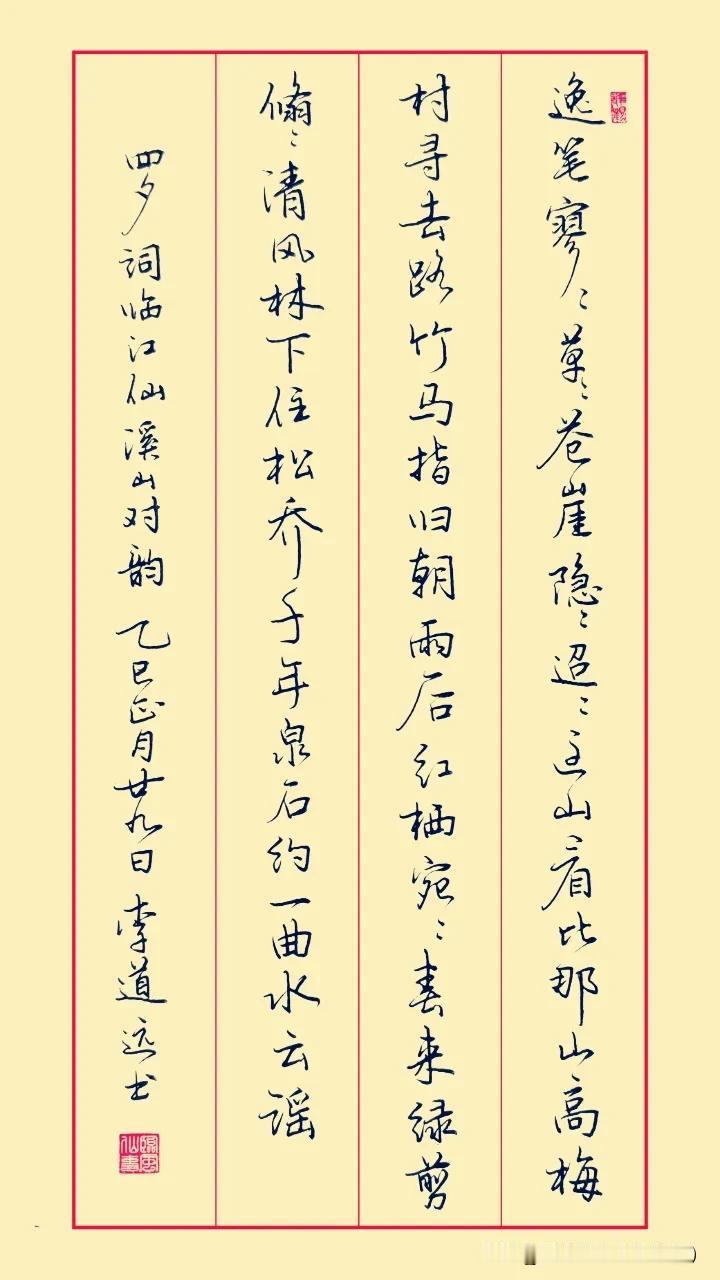 逸笔寥〻草〻苍崖隐〻迢〻这山看比那山高梅
村寻去路竹马指归朝雨后红栖宛〻春来绿剪
翛〻清风林下住松乔千年泉石约一曲水云谣
罗词临江仙溪山对韵 乙巳正月廿九日 李道远书